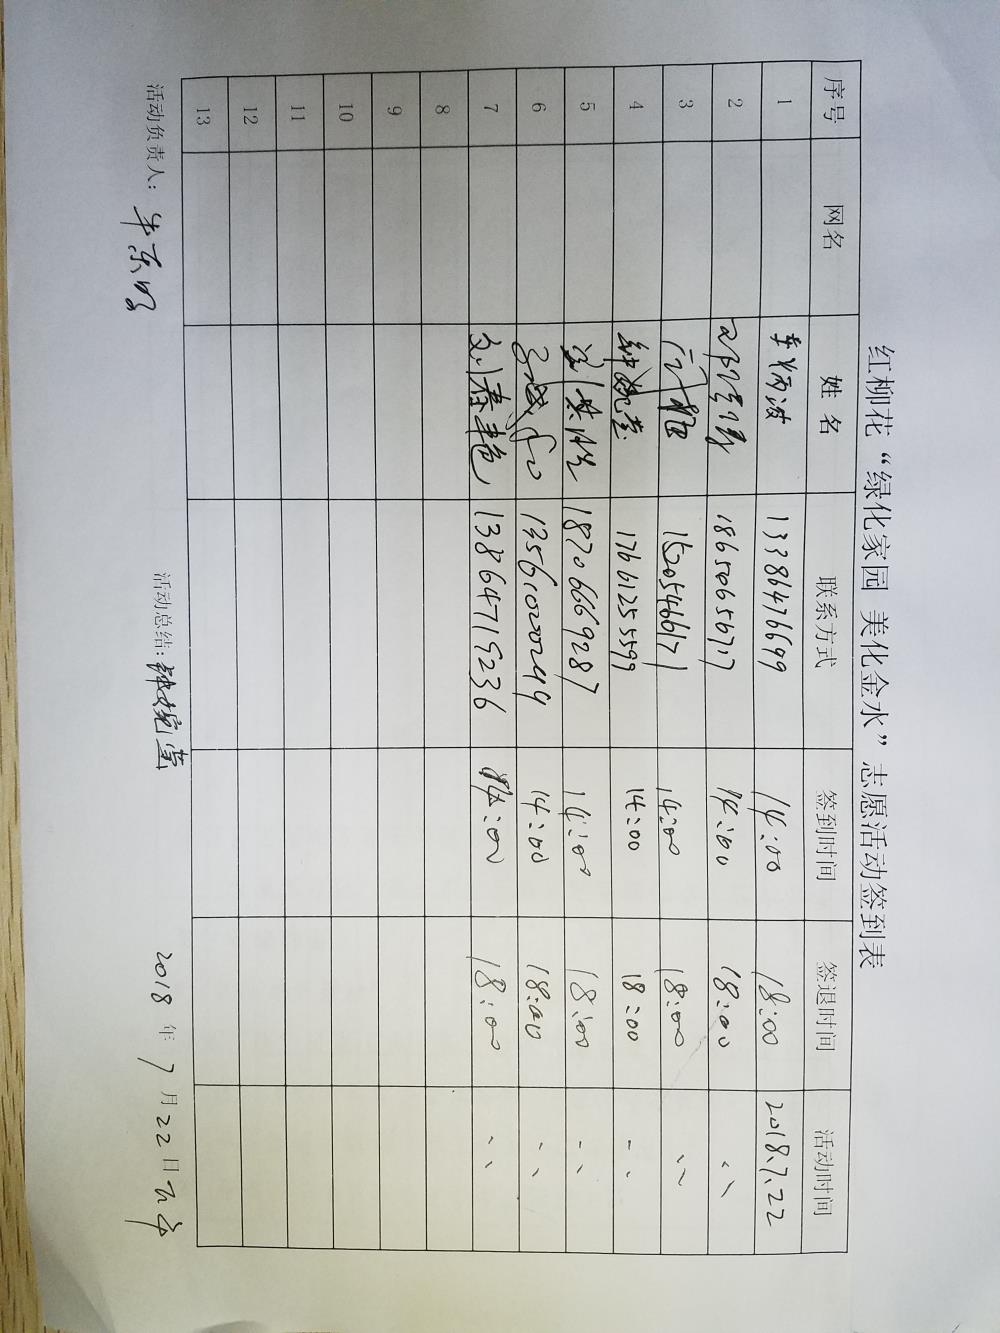 红柳花“绿化家园 美化金水”志愿活动签到表
序号 网名 姓名 联系方式 签到时间 签退时间 活动时间
1 13386476699 14:00 18:00 2018.7.22
2 18650656717 14:00 18:00 、、
3 15205466171 14:00 18:00 、、
4 钟婉莹 17661255599 14:00 18:00 、、
5 18706669287 14:00 18:00 、、
6 13561020249 14:00 18:00 、、
7 刘春艳 13864719236 14:00 18:00 、、
8
9
10
11
12
13
活动负责人: 牟东明 活动总结: 钟婉莹 2018年7月22日下午